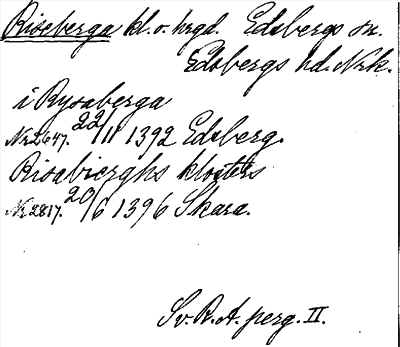 Riseberga kl. o. hrgd. Edsbergs sn.
Edsbergs hd. Nrk.
i Rysaberga
Nr 2647. 22/11 1392 Edsberg.
Risabierghs klosters
Nr 2817. 20/6 1396 Skara.
Sv. R. A. perg. II.